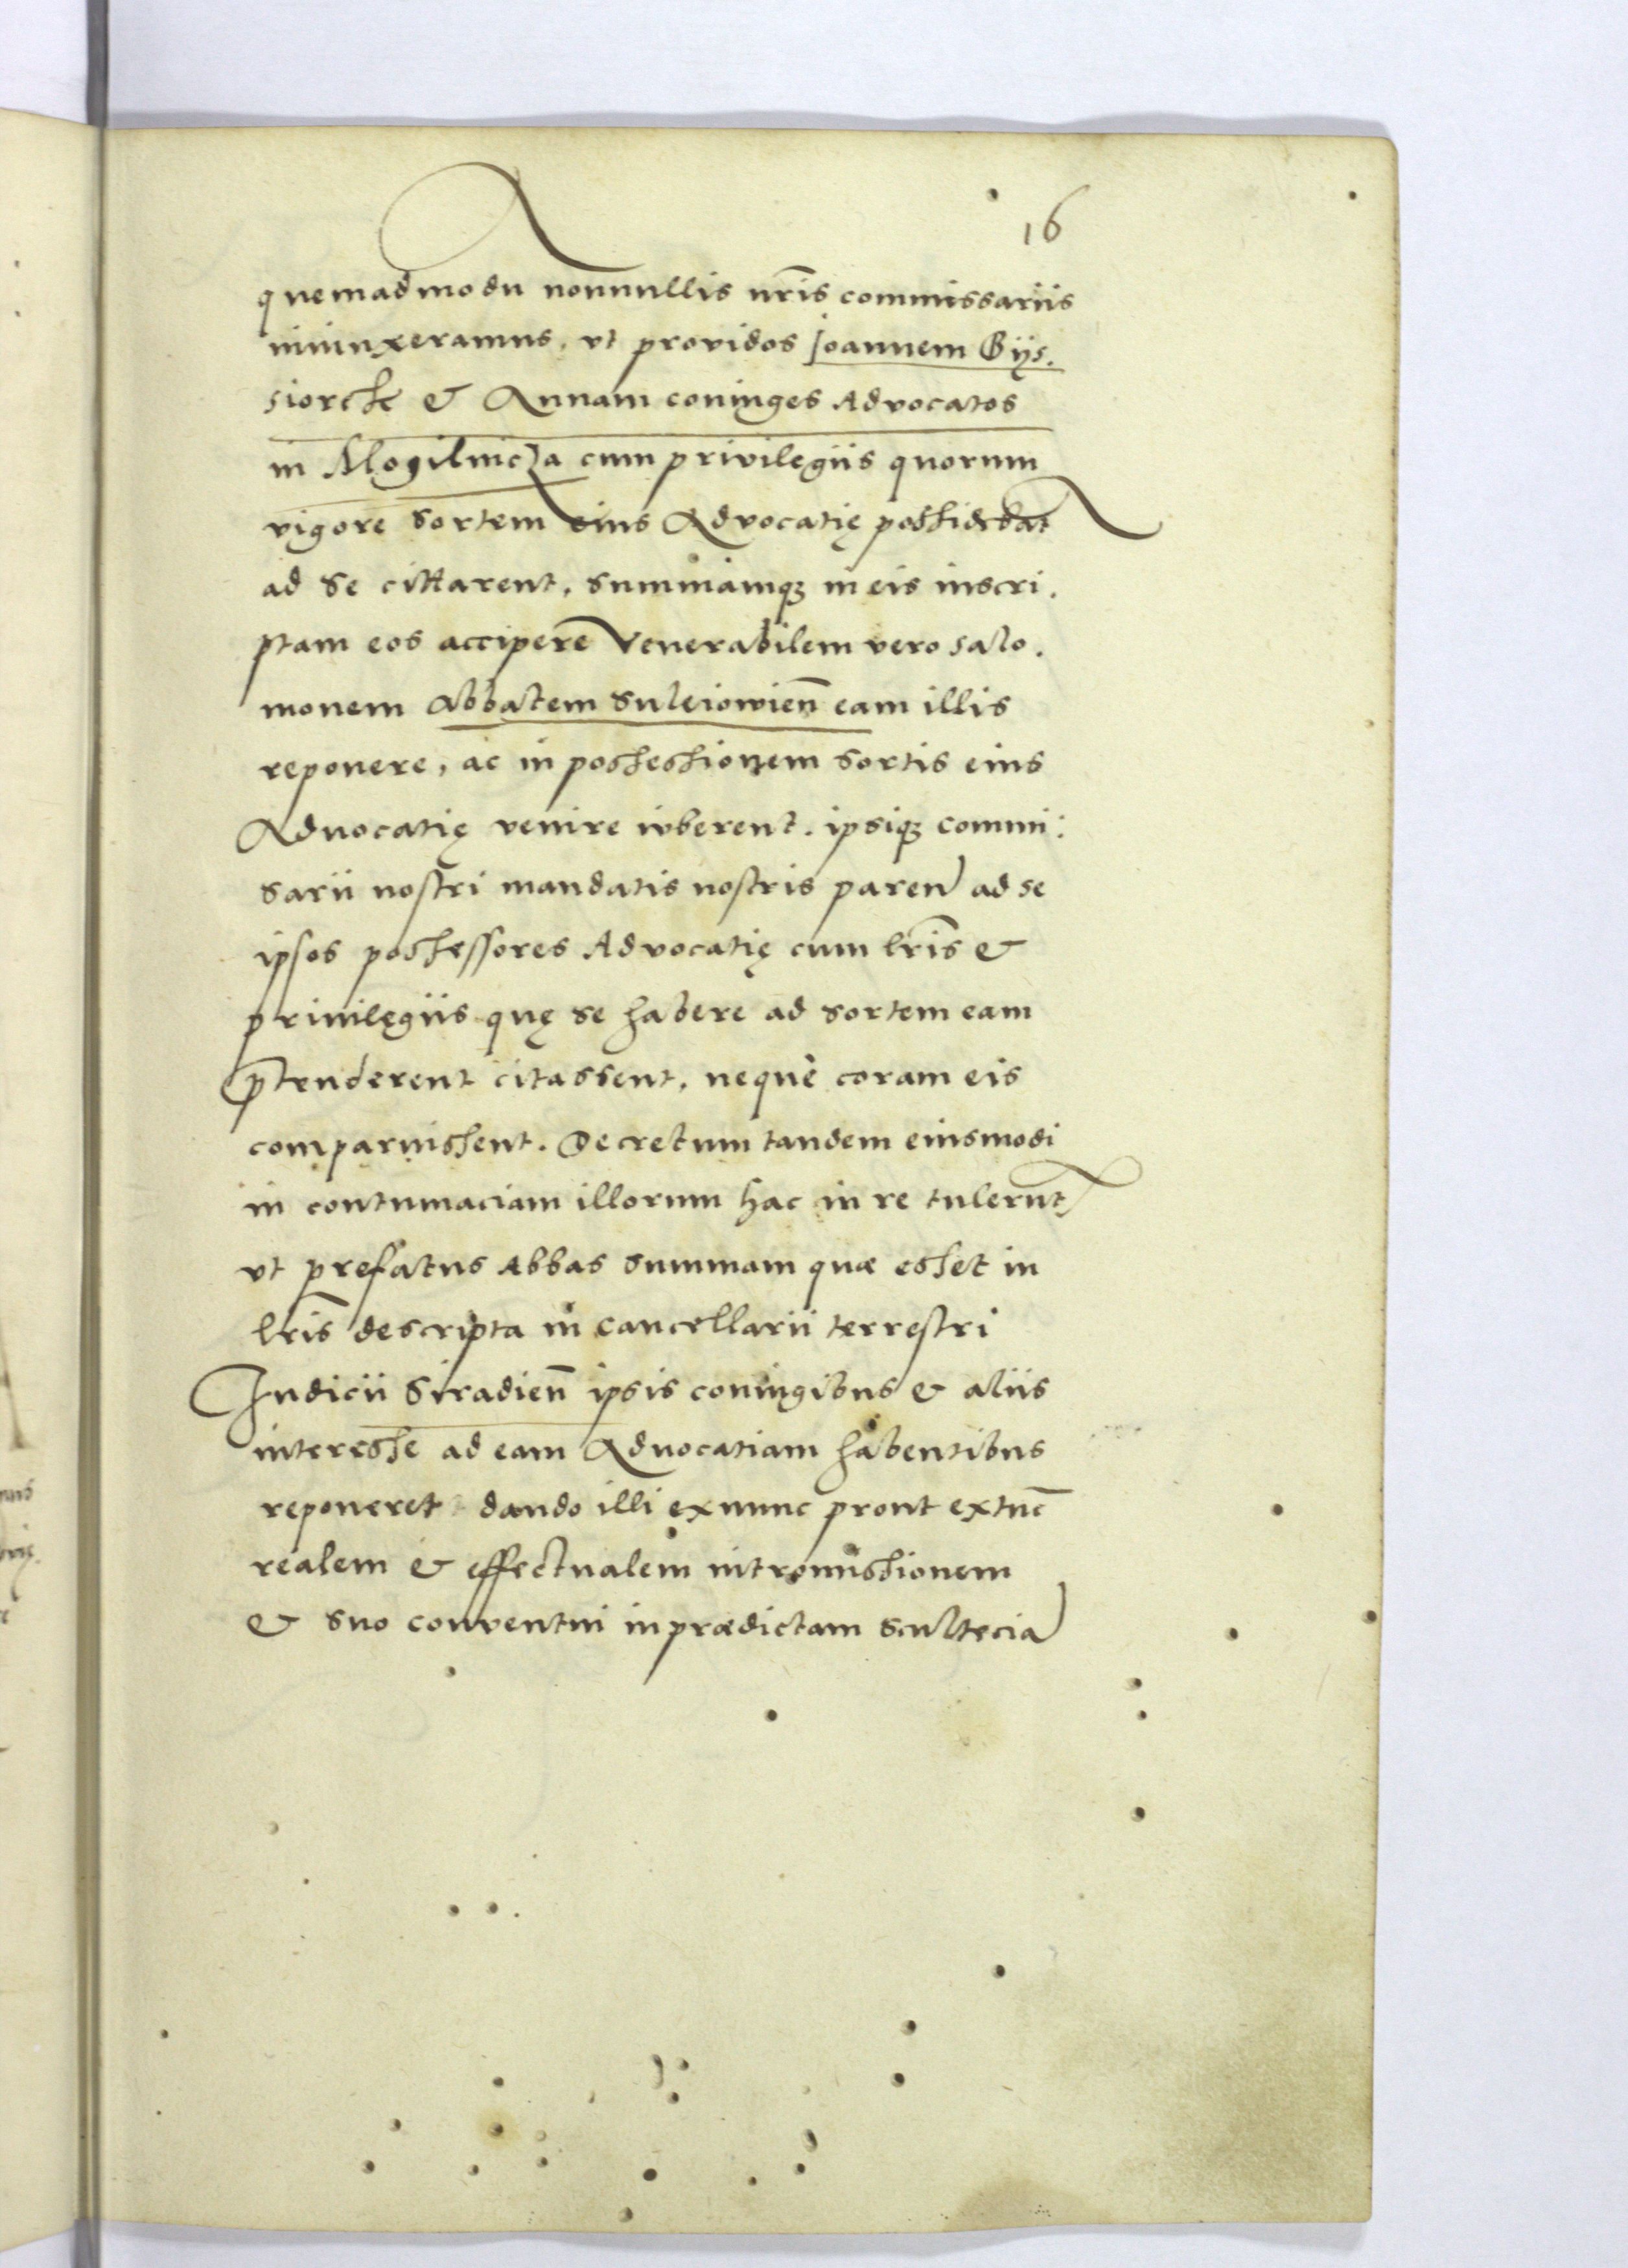 16
quemadmodu nonnullis nr̃is commissariis
iniunxeramus, vt providos Joannem Gijs.
siorek & Annam coniuges Advocatos
in Mogilnicza cum privilegiis quorum
vigore sortem eius Advocatię possidebat
ad se cittarent, summamq; in eis inscri.
ptam eos accipere Venerabilem vero salo.
monem Abbatem Suleiowien̄ eam illis
reponere, ac in possessionem sortis eius
Aduocatię venire iuberent. ipsiq; commi:
sarii nostri mandatis nostris paren ad se
ipsos possessores Advocatię cum lr̃is &
priuilęgiis quę se habere ad sortem eam
p̄tenderent citassent, neque coram eis
comparuissent. Decretum tandem eiusmodi
in contumaciam illorum hac in re tulerut
vt prefatus Abbas summam quæ esset in
lr̃is descripta in cancellarii terrestri
Iudicii Siradien̄ ipsis coniugibus & aliis
interesse ad eam Aduocatiam habentibus
reponeret dando illi exnunc prout extūc
realem & effectualem intromissionem
& suo conventui in prædictam scultecia